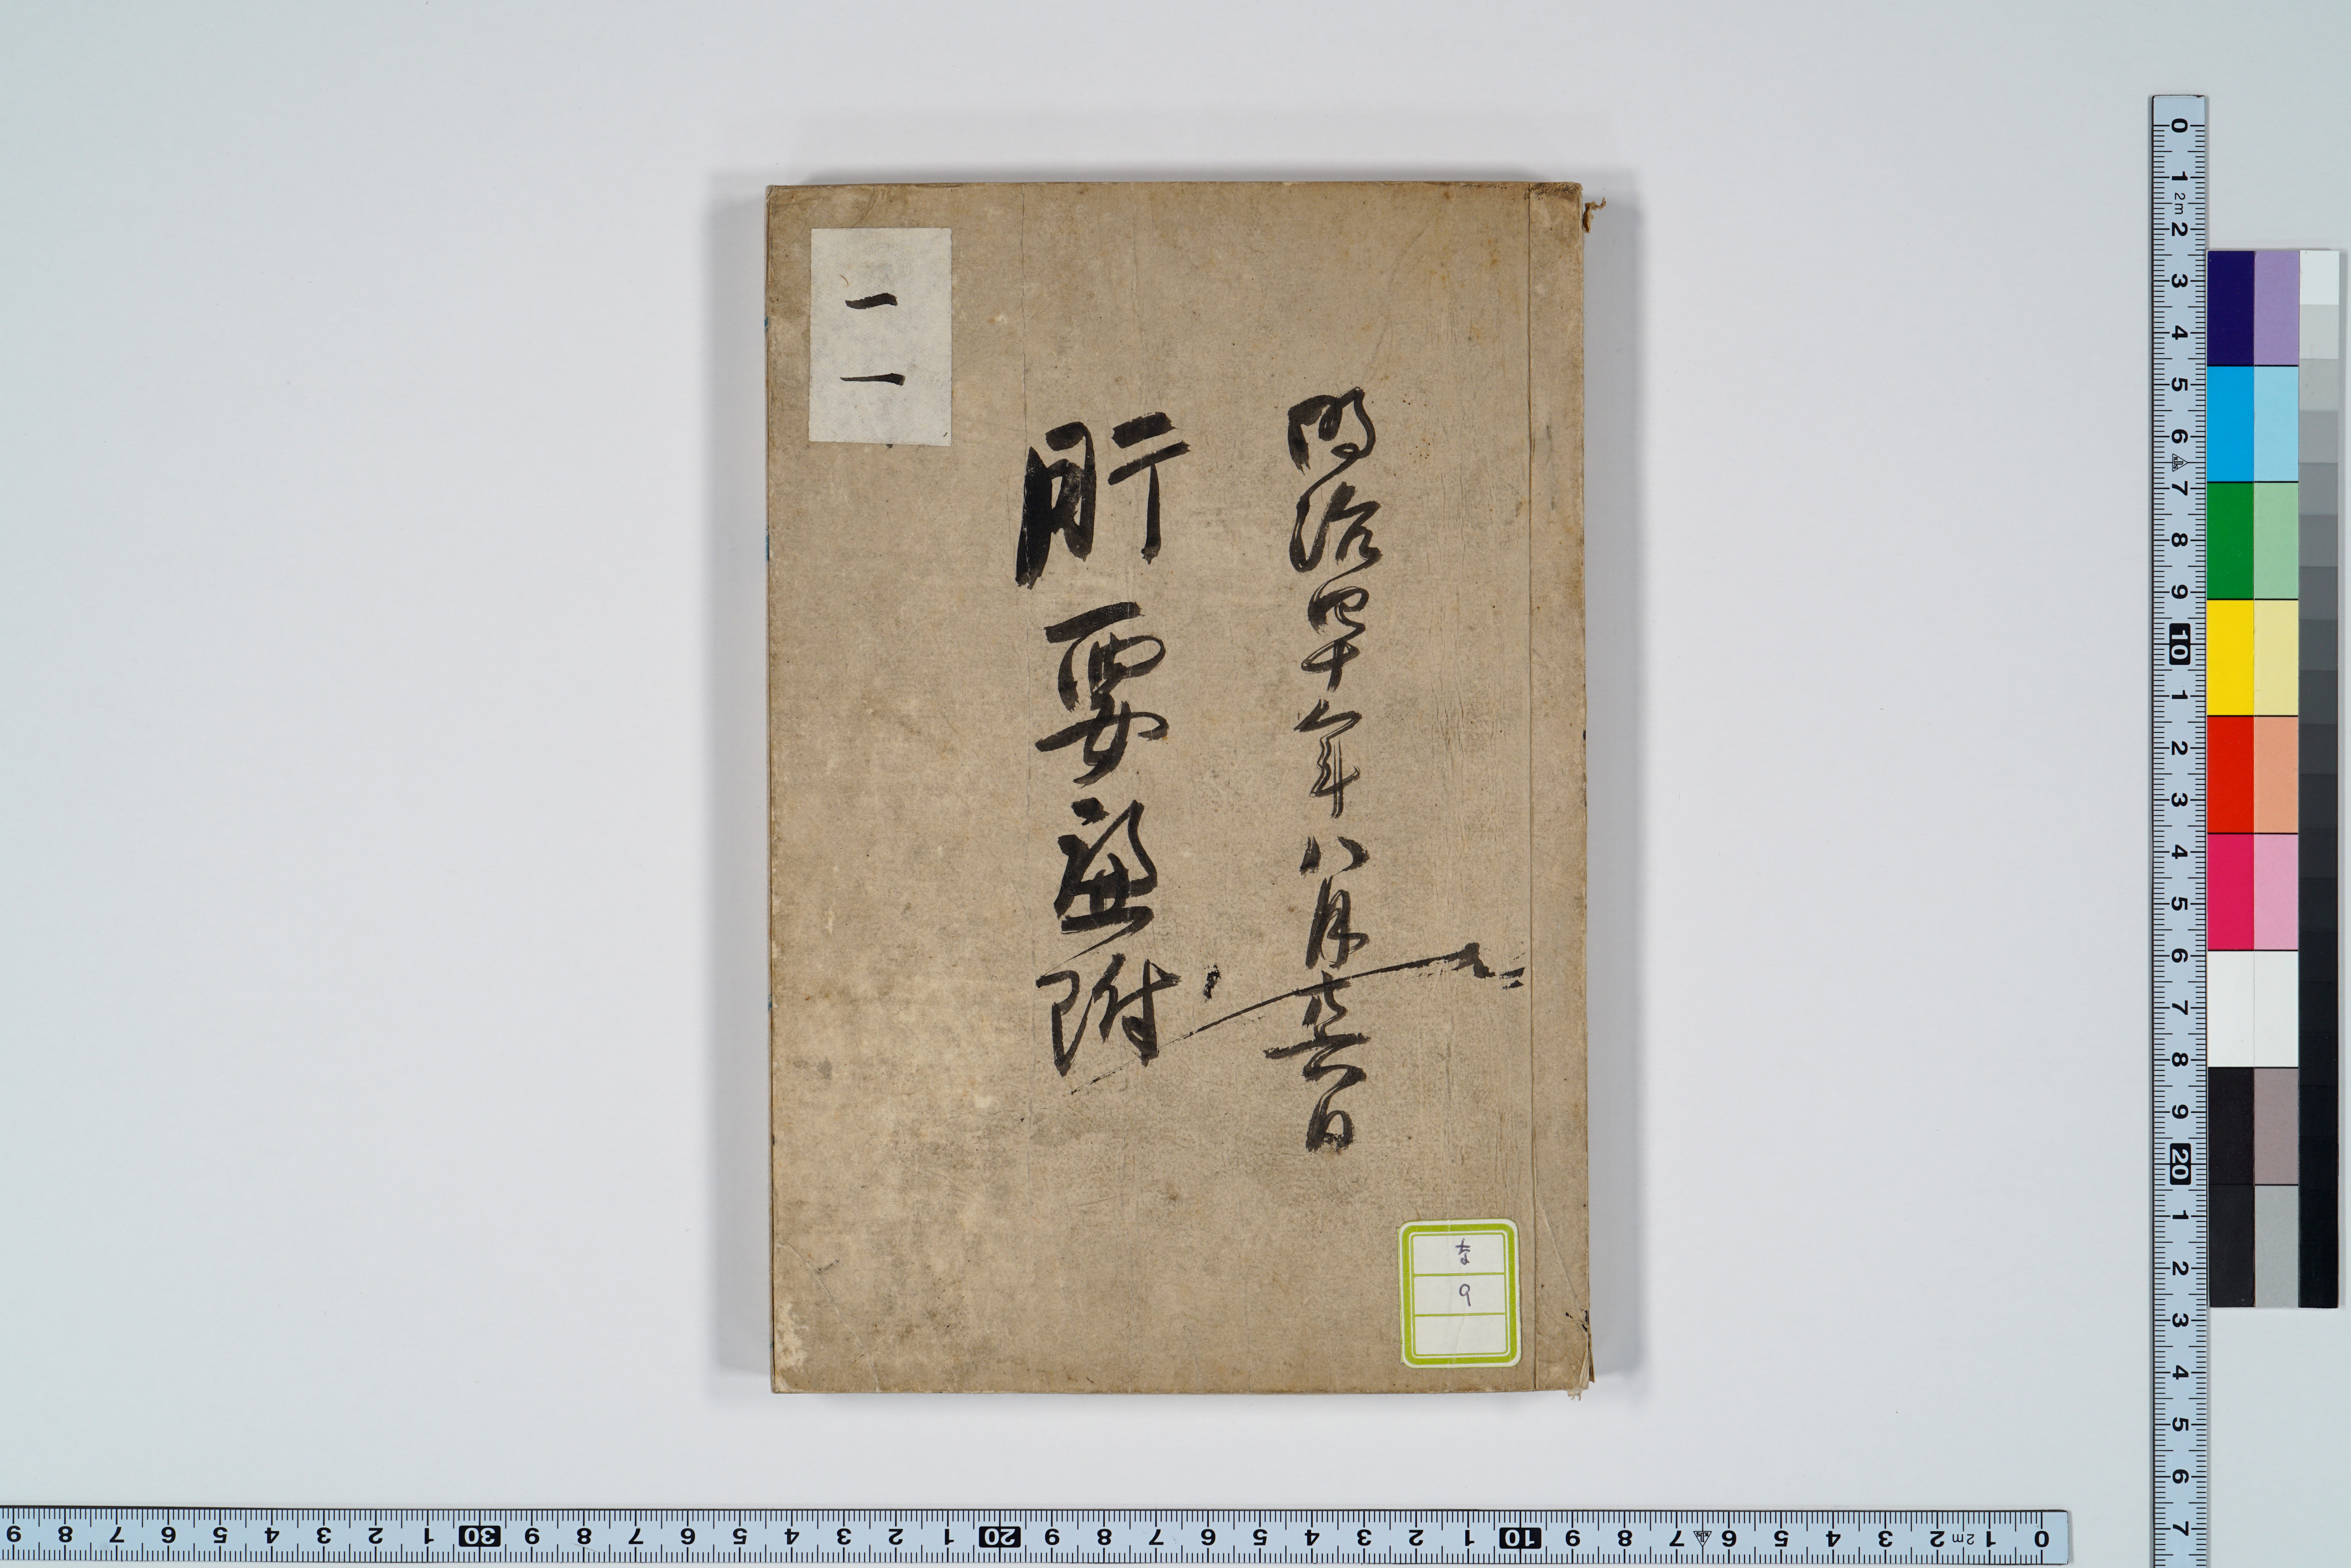 明治四十年八月
日
肝要廉附
二
な
9